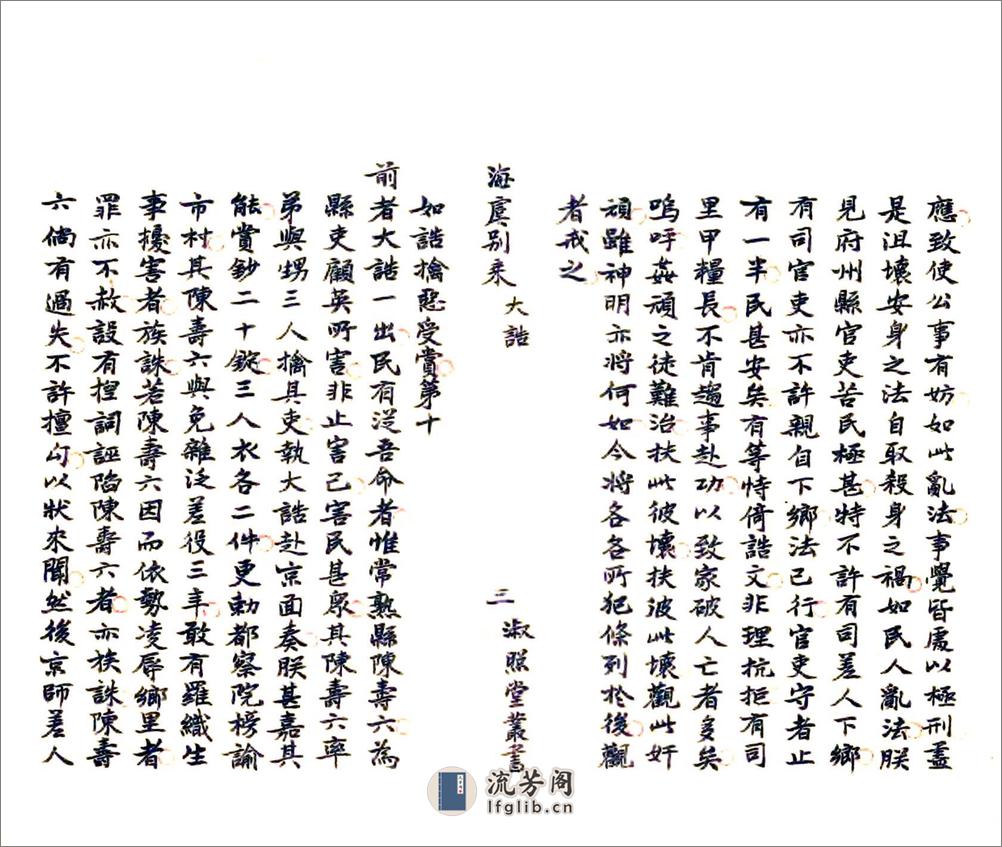 應致使公事有妨如此亂法事覺皆處以極刑盖
是沮壞安身之法自取殺身之禍如民人亂法朕
見府州縣官吏苦民極甚特不許有司差人下鄉
有司官吏亦不許親自下鄉法已行官吏守者止
有一半民甚安矣有等恃倚誥文非理抗拒有司
里甲糧長不肯趨事赴功以致家破人亡者多矣
嗚呼姦頑之徒難治扶此彼壞扶彼此壞觀此奸
頑雖神明亦將何如今將各各所犯條列於後觀
者戒之
海虞别乘 大誥 三 淑照堂叢書
如誥擒惡受賞第十
前者大誥一出民有從吾命者惟常熟縣陳壽六為
縣吏顧英所害非止害己害民甚衆其陳壽六率
弟與甥三人擒其吏執大誥赴京面奏朕甚嘉其
能賞鈔二十錠三人衣各二件更勅都察院榜諭
市村其陳壽六與免雜泛差役三年敢有羅織生
事擾害者族誅若陳壽六因而依勢凌辱鄉里者
罪亦不赦設有揑詞誣陷陳壽六者亦族誅陳壽
六倘有過失不許擅勾以狀來聞然後京師差人
流芳阁
lfglib.cn